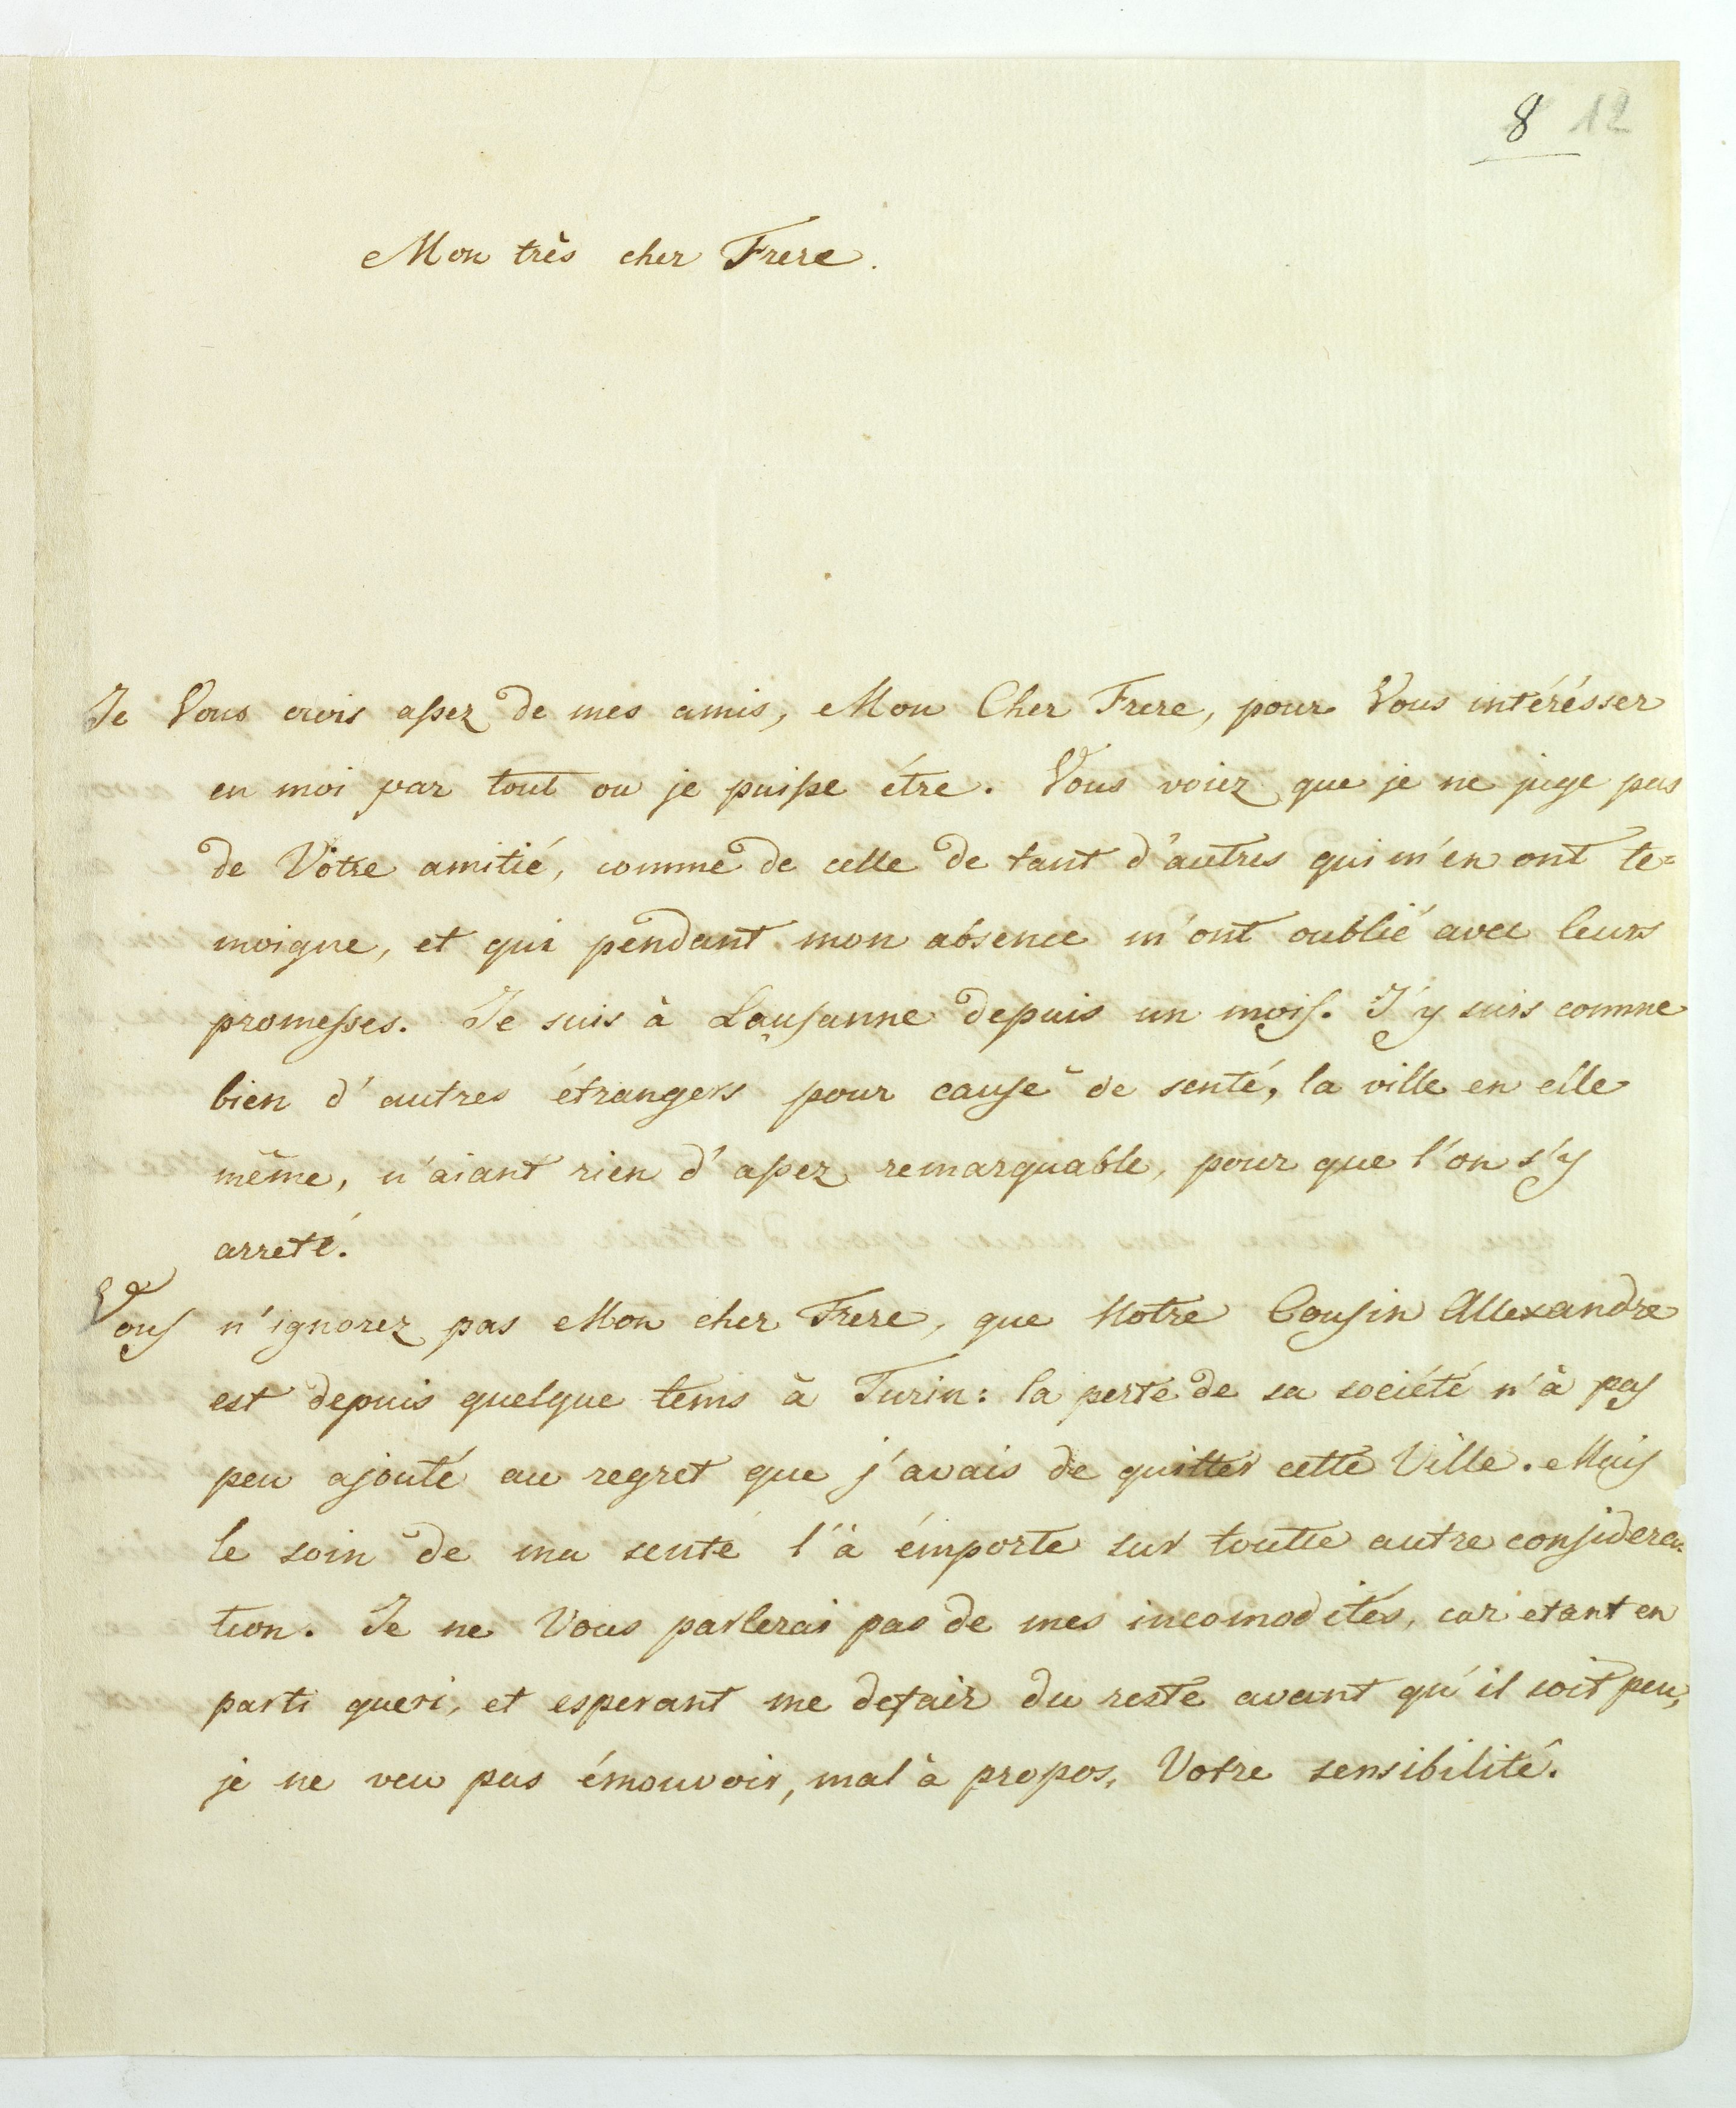 8 12
Mon très cher Frere.
Je Vous crois assez de mes amis, Mon Cher Frere, pour Vous intérésser
en moi par tout ou je puisse étre. Vous voiez que je ne juge pas
de Vôtre amitié, comme de celle de tant d'autres qui m'en ont te=
moigne, et qui pendant mon absence m'ont oublié avec leurs
promesses. Je suis à Lausanne depuis un mois. J'y suis comme
bien d'autres étrangers pour cause de senté, la ville en elle
même, n'aiant rien d'assez remarquable, pour que l'on s'y
arreté.
Vous n'ignorez pas Mon cher Frere, que Notre Cousin Allexandre
est depuis quelque tems à Turin: la perte de sa société n'à pas
peu ajouté au regret que j'avais de quitter cette Ville. Mais
le soin de ma senté l'à émporte sur toutte autre considera=
tion. Je ne Vous parlerai pas de mes incomodités, car etant en
parti gueri, et esperant me defair du reste avant qu'il soit peu,
je ne veu pas émouvoir, mal à propos, Votre sensibilité.